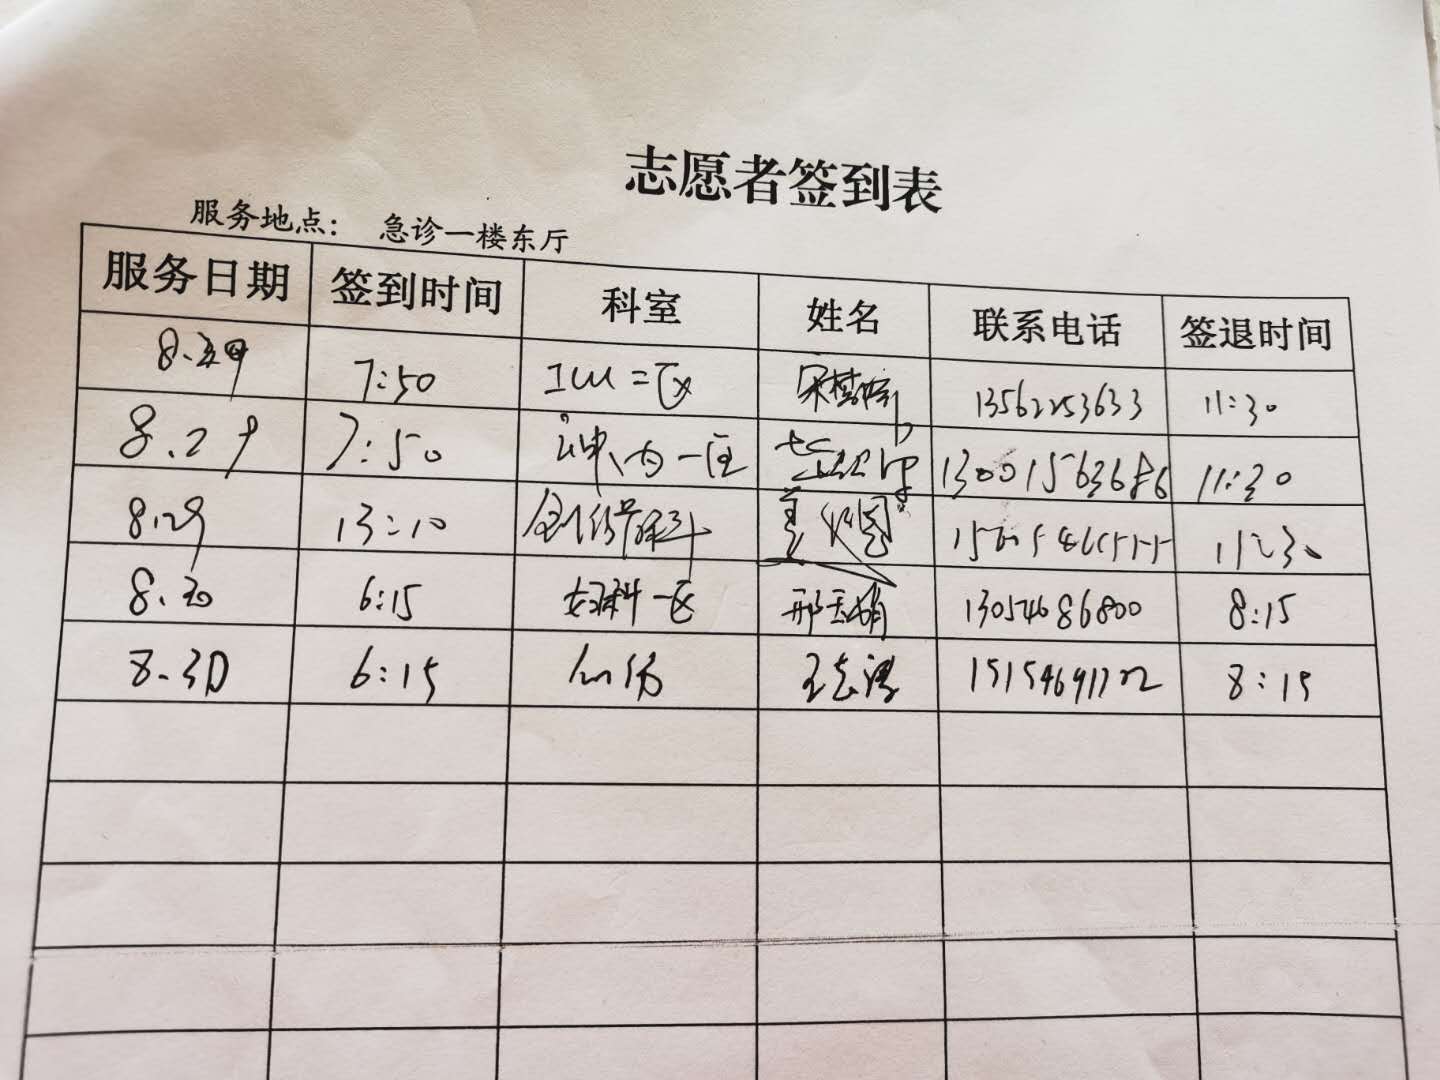 志愿者签到表
服务地点： 急诊一楼东厅
服务日期 签到时间 科室 姓名 联系电话 签退时间
7:50 ICU二区 13562253633 11:30
8.29 7:50 神内一区 13001563686 11:30
8.29 13:10 创伤骨科
8.30 6:15 妇科一区 邢玉娟 13054686800 8:15
8.30 6:15 王志涛 8:15